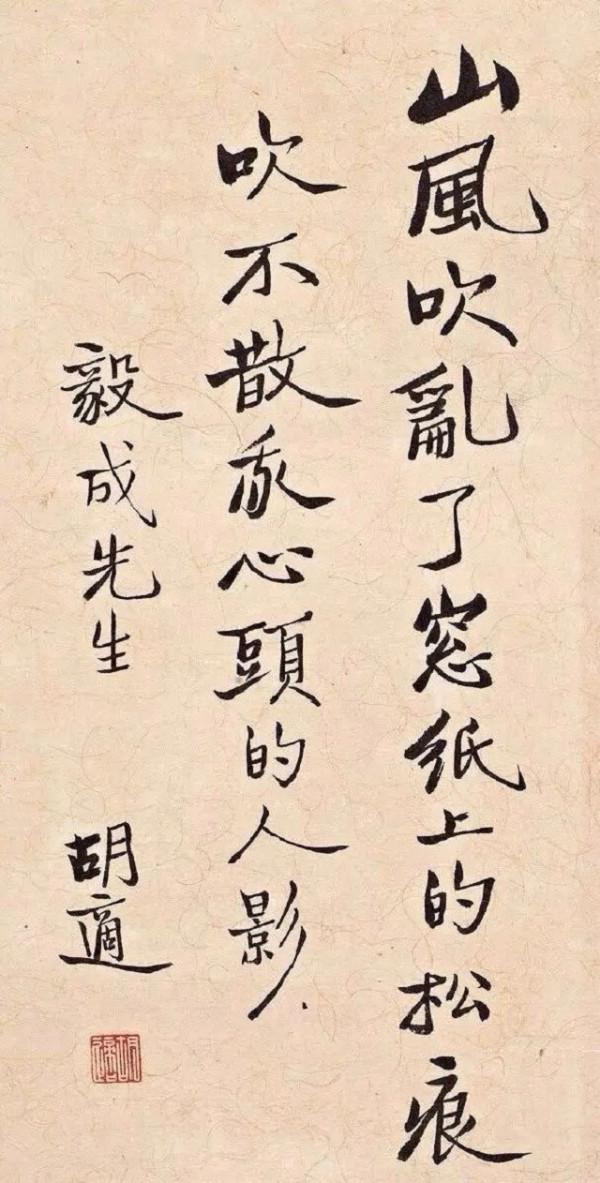 山風吹亂了窓纸上的松痕
吹不散我心頭的人影.
毅成先生
胡適
胡適